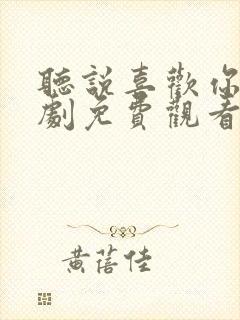 聽說喜歡你
劇免費觀看
黃蓓佳